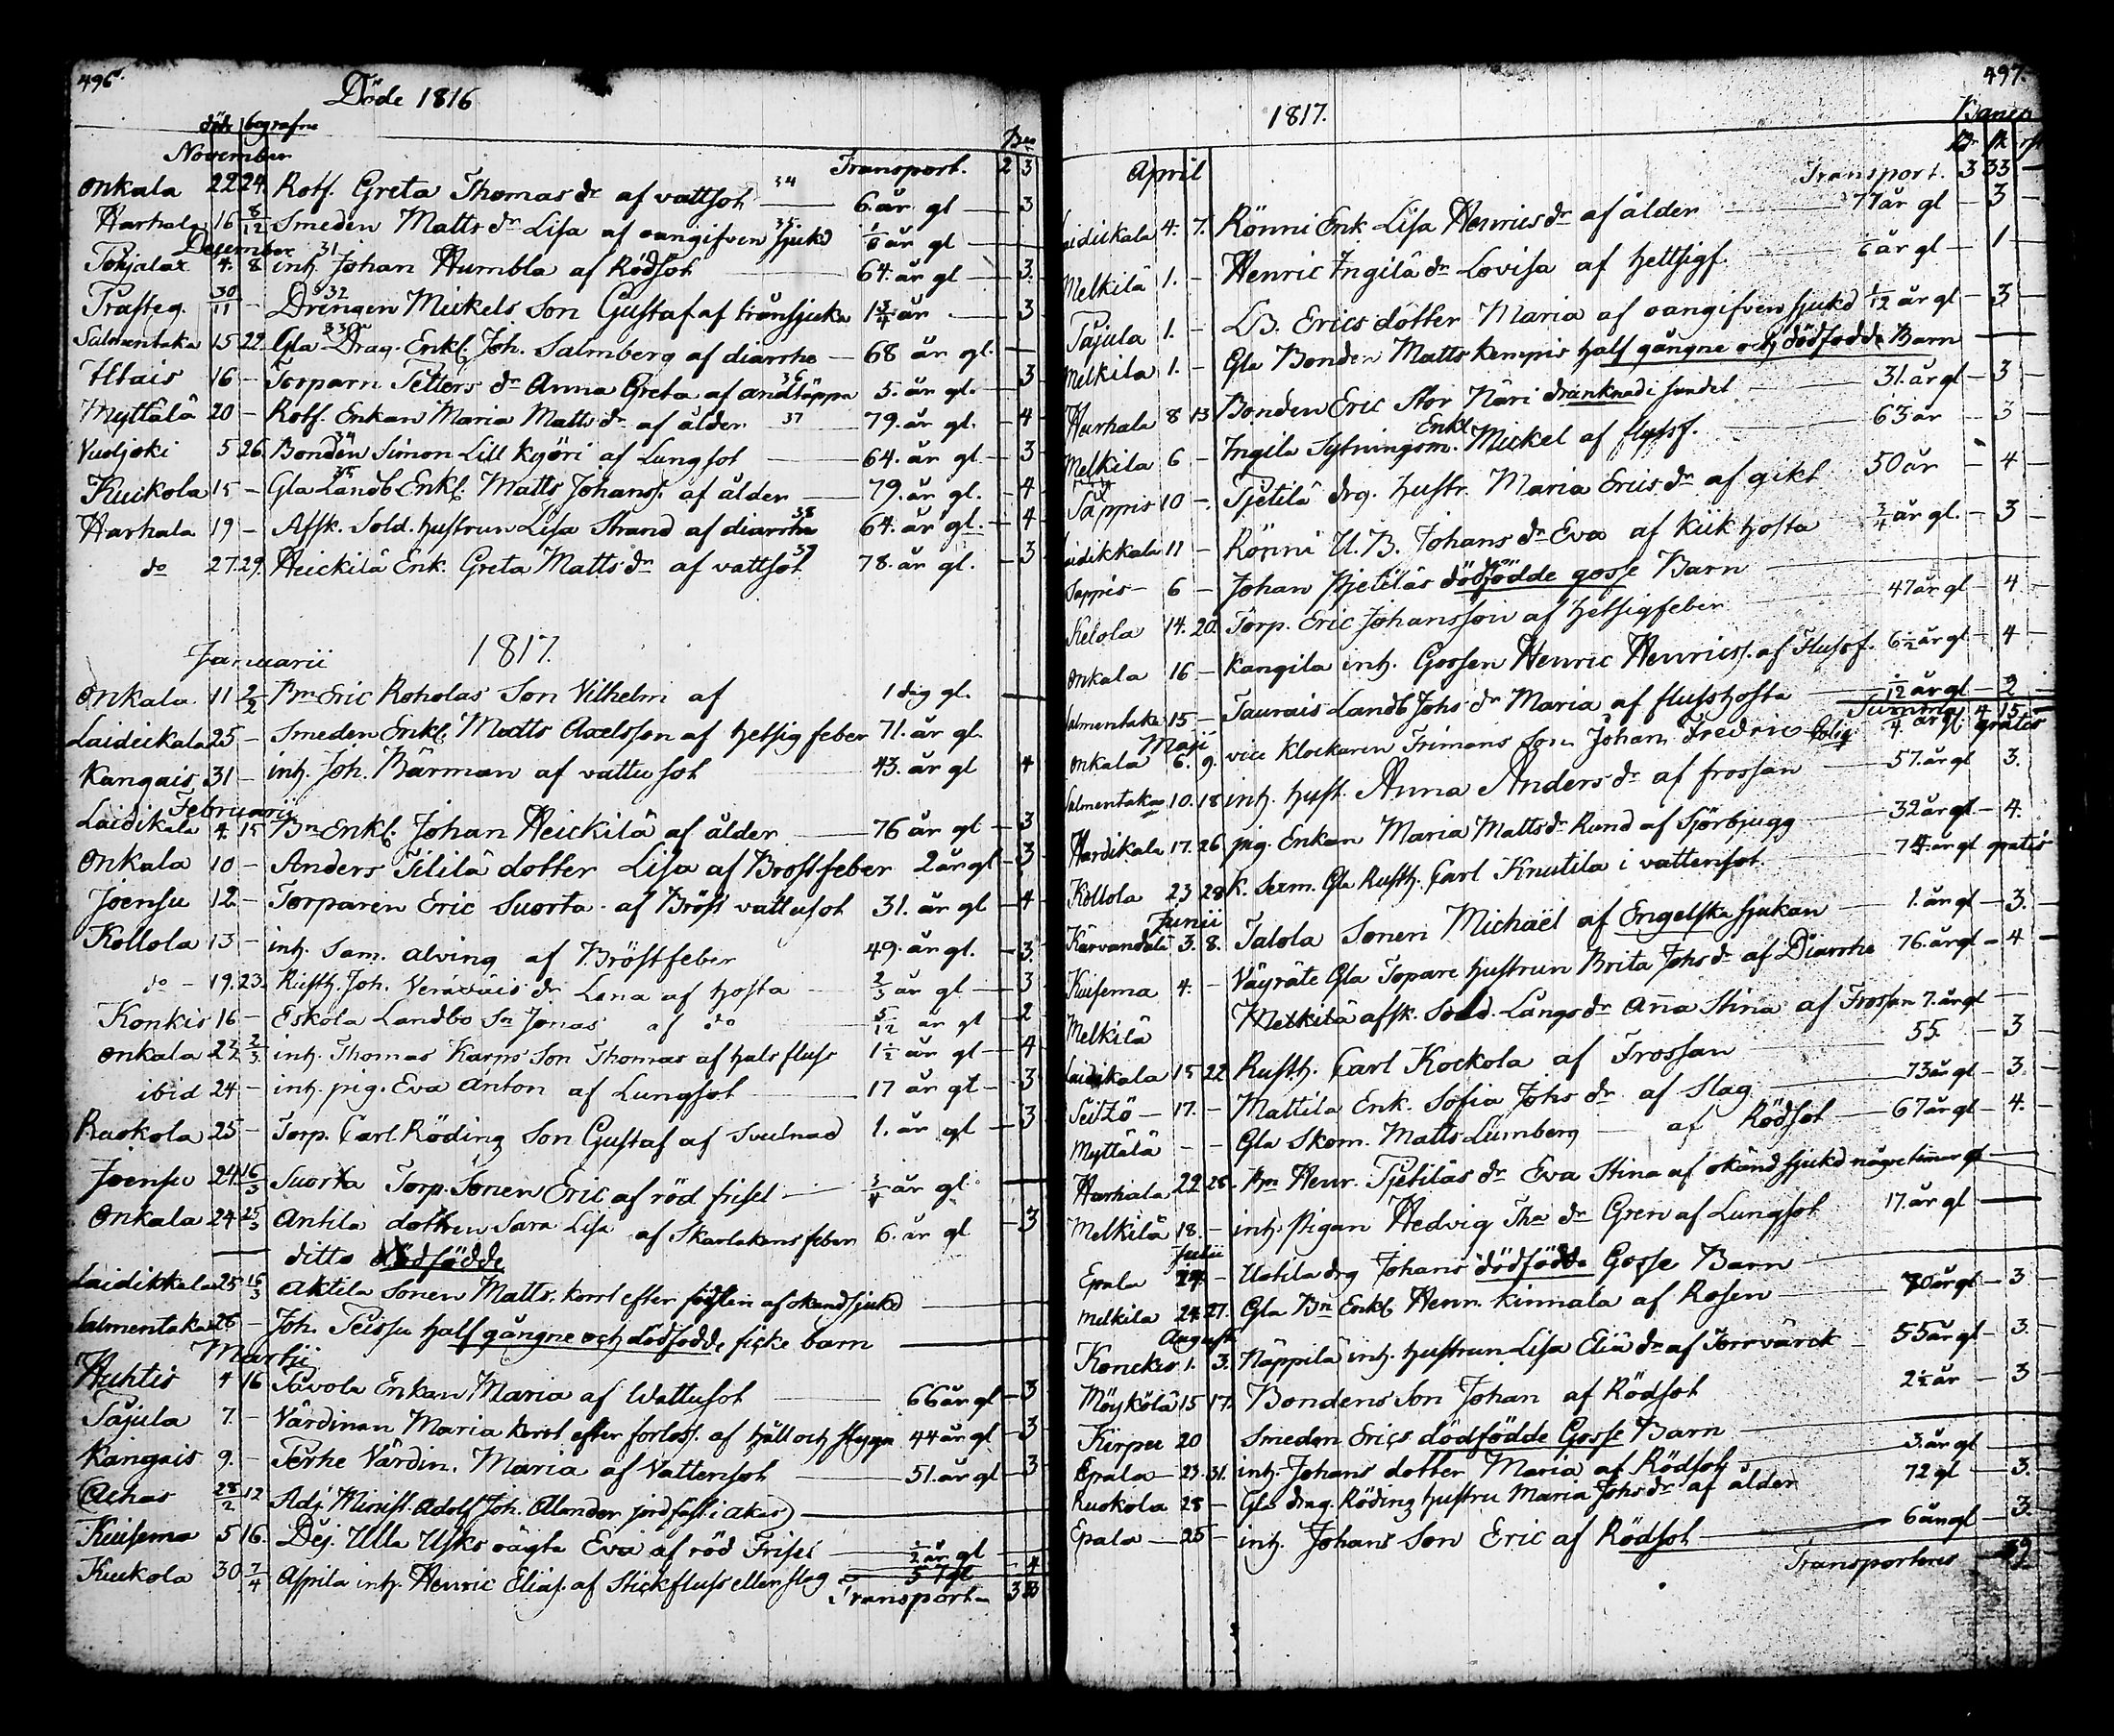 496.
Döde 1816
död begrafne
November
Transport. 2 3
Onkala 22 24. Rotf. Greta Thomas dr af vattsot 34 6. år gl 3
Harhala 16 8/12 Smeden Matts dr Lisa af oangifven sjukd 35 år gl
December
4. 8 31 inh. Johan Humbla af Rödsot 64. år gl 3.
30/11 - 32 Drengen Mickels Son Gustaf af tränsjuka 1 3/4 år 3
Salmentaka 15 22 33 Gla Drag. Enkl. Joh. Salmberg af diarrhe 68 år gl.
Illais 16 - Torparn Petters dr Anna Greta af andtäppa 36 5. år gl. 3
Myttälä 20 - Rotf. Enkan Maria Matts dr af ålder 37 79. år gl. 4
Vuoljoki 5 26. 34 Bonden Simon Lill Kyöri af Lungsot 64. år gl 3
Kuikola 15 - 35 Gla Landb Enkl. Matts Johanss. af ålder 79. år gl. 4
Harhala 19 - Afsk. Sold. hustrun Lisa Strand af diarrhe 38 64. år gl. 4
do 27. 29. Heickilä Enk. Greta Matts dr af vattsot 39 78. år gl. 3
1817.
Januarii
Onkala 11 2/2 Bn Eric Roholas Son Vilhelm af 1 dag gl.
Laideikala 25 - Smeden Enkl. Matts Axelsson af hetsig feber 71. år gl.
Kangais 31 - inh. Joh. Bärman af vattusot 43. år gl 4
Februarii
Laidikala 4. 15 Bn Enkl. Johan Heickilä af ålder 76 år gl 3
Onkala 10 - Anders Tililä dotter Lisa af Bröstfeber 2 år gl 3
Joensu 12 - Torparen Eric Suorta af Bröst vattusot 31. år gl 4
Kollola 13 - inh. Sam. Alving af Bröstfeber 49. år gl. 3
do - 19. 23. Rusth. Joh. Veräväis dr Lena af hosta 2/3 år gl 3
Konkis 16 - Eskola Landbo Sn Jonas af do 5/12 år gl 2
Onkala 23 2/3 inh. Thomas Karps Son Thomas af hals fluss 1 1/2 år gl 4
ibid 24 - inh. pig. Eva Anton af Lungsot 17 år gl 3
Ruokola 25 - Torp. Carl Röding Son Gustaf af Svulnad 1. år gl 3
Joensu 24. 16/3 Suorta Torp. Sonen Eric af röd frisel 3/4 år gl
Onkala 24 25/3 Antila dottren Sara Lisa af Skarlakansfeber 6. år gl 3
ditto dödfödde
Laidikkala 25 16/3 Aktila Sonen Matts. kort efter födslen af okänd sjukd
Salmentaka 26 - Joh. Peissu half gångne och dödfödde ficke barn
Martii
Huhtis 4 16 Savola Enkan Maria af Wattusot 66 år gl 3
Pajula 7. - Värdinnan Maria kort efter forloss. af håll och stygn 44 år gl 3
Kangais 9. - Perhe Värdin. Maria af Vattensot 51. år gl 3
(Achas 28/2 12 Adj. Minist. Adolf Joh. Alander jordfäst i Akas)
Kuisema 5 16. Dej. Ulla Usko oägta Eva af röd Frisel 1/2 år gl
Kuikola 30 7/4 Assila inh. Henric Elias. af Stickfluss eller slag 57 gl 4
Transport 3 33
497.
1817.
Baneco
Rdr sk rst
April
Transport. 3 33
Laidickala 4. 7. Rönni Enk. Lisa Henrics dr af ålder 77 år gl 3
Melkilä 1. - Henric Ingilä dr Lovisa af hettsigf. år gl 1
Pajula 1. - LB. Erics dotter Maria af oangifven sjukd 1/12 år gl 3
Melkila 1. - Gla Bonden Matts Kempis half gångne och dödfödde Barn
Harhala 8 13 Bonden Eric Stor Näri drunknad i sundet 31. år gl 3
Melkila 6 - Ingila Sytningsm. Enkl Mickel af flussf. 63 år 3
Sappis 10 - Pjetilä drg. hustr. Maria Erics dr af gikt 50 år 4
Laidikkala 11 - Rönni U.B. Johans dr Eva af kiikhosta 3/4 år gl. 3
Sappis 6 - Johan Pjetiläs dödfödde gosse Barn
Kelola 14. 20. Torp. Eric Johansson af hetsigfeber 47 år gl 4
Onkala 16 - Kangila inh. Gossen Henric Henricss. af Flussf. 6 1/2 år gl 4
Salmentaka 15 - Taurais Landb Johs dr Maria af flusshosta 1/12 år gl 2
Summa 4 15
Maji
Onkala 6. 9. vice Klockaren Frimans Son Johan Fredric 4. år gl. gratis
Salmentaka 10. 18 inh. hust. Anna Anders dr af frossan 57. år gl 3.
Hardikala 17. 26 pig. Enkan Maria Matts dr Rund af Sjörbjugg 32 år gl 4.
Kollola 23 28 K. Serm. Gla Rusth. Carl Knutila i vattensot 74. år gl gratis
Junii
Kärvandälä 3. 8. Talola Sonen Michaël af Engelska sjukan 1. år gl 3.
Kuisema 4. - Väyräte Gla Torpare hustrun Brita Johs dr af Diarrhe 76. år gl 4
Melkilä Melkilä afsk. Sold. Långs dr Anna Stina af Frossan 7. år gl
Laidikala 15 22 Rusth. Carl Kockola af Frossan 55. 3
17. - Mattila Enk. Sofia Johs dr af Slag 73 år gl 3.
Myttälä - - Gla Skom. Matts Lumberg af Rödsot 67 år gl 4.
Harhala 22 28. Bn Henr. Pjetiläs dr Eva Stina af okänd sjukd någre timar gl
Melkilä 18. - inh. Pigan Hedvig Tho dr Gren af Lungsot 17. år gl
Julii
Epala 24. - Uotila drg Johans dödfödde Gosse Barn
Melkila 24. 27. Gla Bn Enkl. Henr. Kinnala af Rosen 70 år gl 3
August
Konckis 1. 3. Näppilä inh. hustrun Lisa Eliä dr af Torrvärck 55 år gl 3.
Möykölä 15 17. Bondens Son Johan af Rödsot 2 1/2 år 3
Kirpu 20 Smeden Erics dödfödde Gosse Barn
Epala 23. 31. inh. Johans dotter Maria af Rödsot 3. år gl
Ruokola 28 - Gla drag. Röding hustru Maria Johs dr af ålder 72 gl 3.
Epala 25 - inh. Johans Son Eric af Rödsot 6 år gl 3.
Transporteres